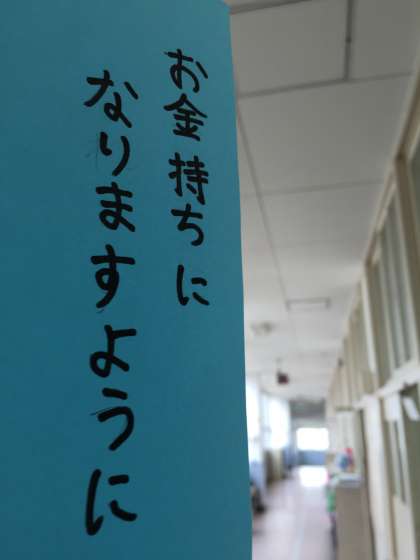 お金持ちに
なりますように